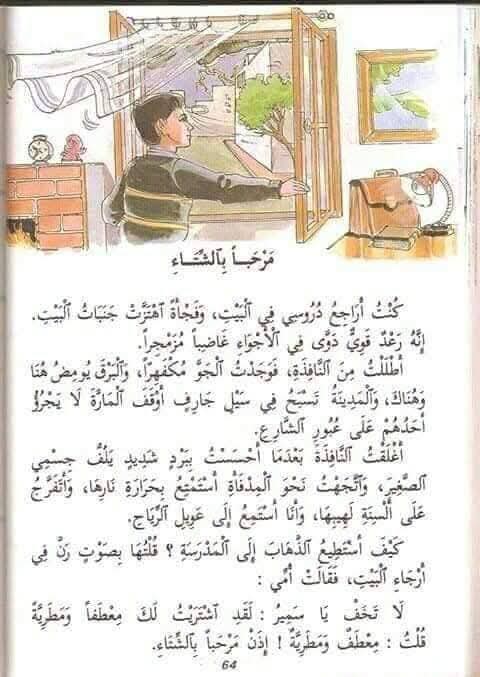 مَرْحَبـــاً بِٱلشِّتَـــاءِ
كُنْتُ أُرَاجِعُ دُرُوسِي فِي ٱلْبَيْتِ، وَفَجْأَةً ٱهْتَزَّتْ جَنَبَاتُ ٱلْبَيْتِ.
إِنَّهُ رَعْدٌ قَوِيٌّ دَوَّى فِي ٱلْأَجْوَاءِ غَاضِباً مُزَمْجِراً.
أَطْلَلْتُ مِنَ ٱلنَّافِذَةِ، فَوَجَدْتُ ٱلْجَوَّ مُكْفَهِرّاً، وَٱلْبَرْقَ يُومِضُ هُنَا
وَهُنَاكَ، وَٱلْمَدِينَةَ تَسْبَحُ فِي سَيْلٍ جَارِفٍ أَوْقَفَ ٱلْمَارَّةَ لَا يَجْرُؤُ
أَحَدُهُمْ عَلَى عُبُورِ ٱلشَّارِعِ.
أَغْلَقْتُ ٱلنَّافِذَةَ بَعْدَمَا أَحْسَسْتُ بِبَرْدٍ شَدِيدٍ يَلُفُّ جِسْمِي
ٱلصَّغِيرَ، وَٱتَّجَهْتُ نَحْوَ ٱلْمِدْفَأَةِ أَسْتَمْتِعُ بِحَرَارَةِ نَارِهَا، وَأَتَفَرَّجُ
عَلَى أَلْسِنَةِ لَهِيبِهَا، وَأَنَا أَسْتَمِعُ إِلَى عَوِيلِ ٱلرِّيَاحِ.
كَيْفَ أَسْتَطِيعُ ٱلذَّهَابَ إِلَى ٱلْمَدْرَسَةِ ؟ قُلْتُهَا بِصَوْتٍ رَنَّ فِي
أَرْجَاءِ ٱلْبَيْتِ، فَقَالَتْ أُمِّي :
لَا تَخَفْ يَا سَمِيرُ : لَقَدِ ٱشْتَرَيْتُ لَكَ مِعْطَفاً وَمَطَرِيَّةً
قُلْتُ : مِعْطَفٌ وَمَطَرِيَّةٌ ! إِذَنْ مَرْحَباً بِٱلشِّتَاءِ.
64